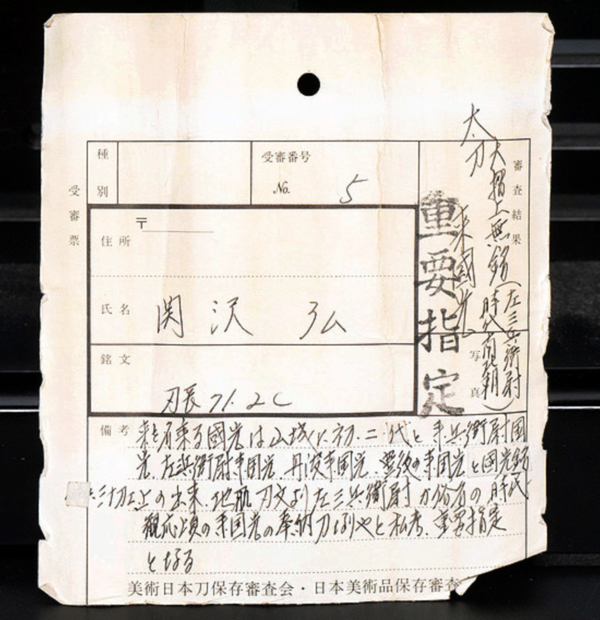 受審票
種別
受審番号
No. 5
〒
住所
氏名 関沢 弘
銘文
刃長 71.2C
審査結果
太刀
大摺上無銘(左三兵衛尉
時代南北朝)
来國光
写真
重要指定
備考
来を名乗る國光は山城に初、二代と来兵衛尉國
光、左兵衛尉来國光、丹波来國光、豊後の来國光と国光銘
の出来、地肌刃文より左三兵衛尉が俗名の時代
観応頃の来国光の奉納刀なりやと私考、重要指定
となる
美術日本刀保存審査会・日本美術品保存審査